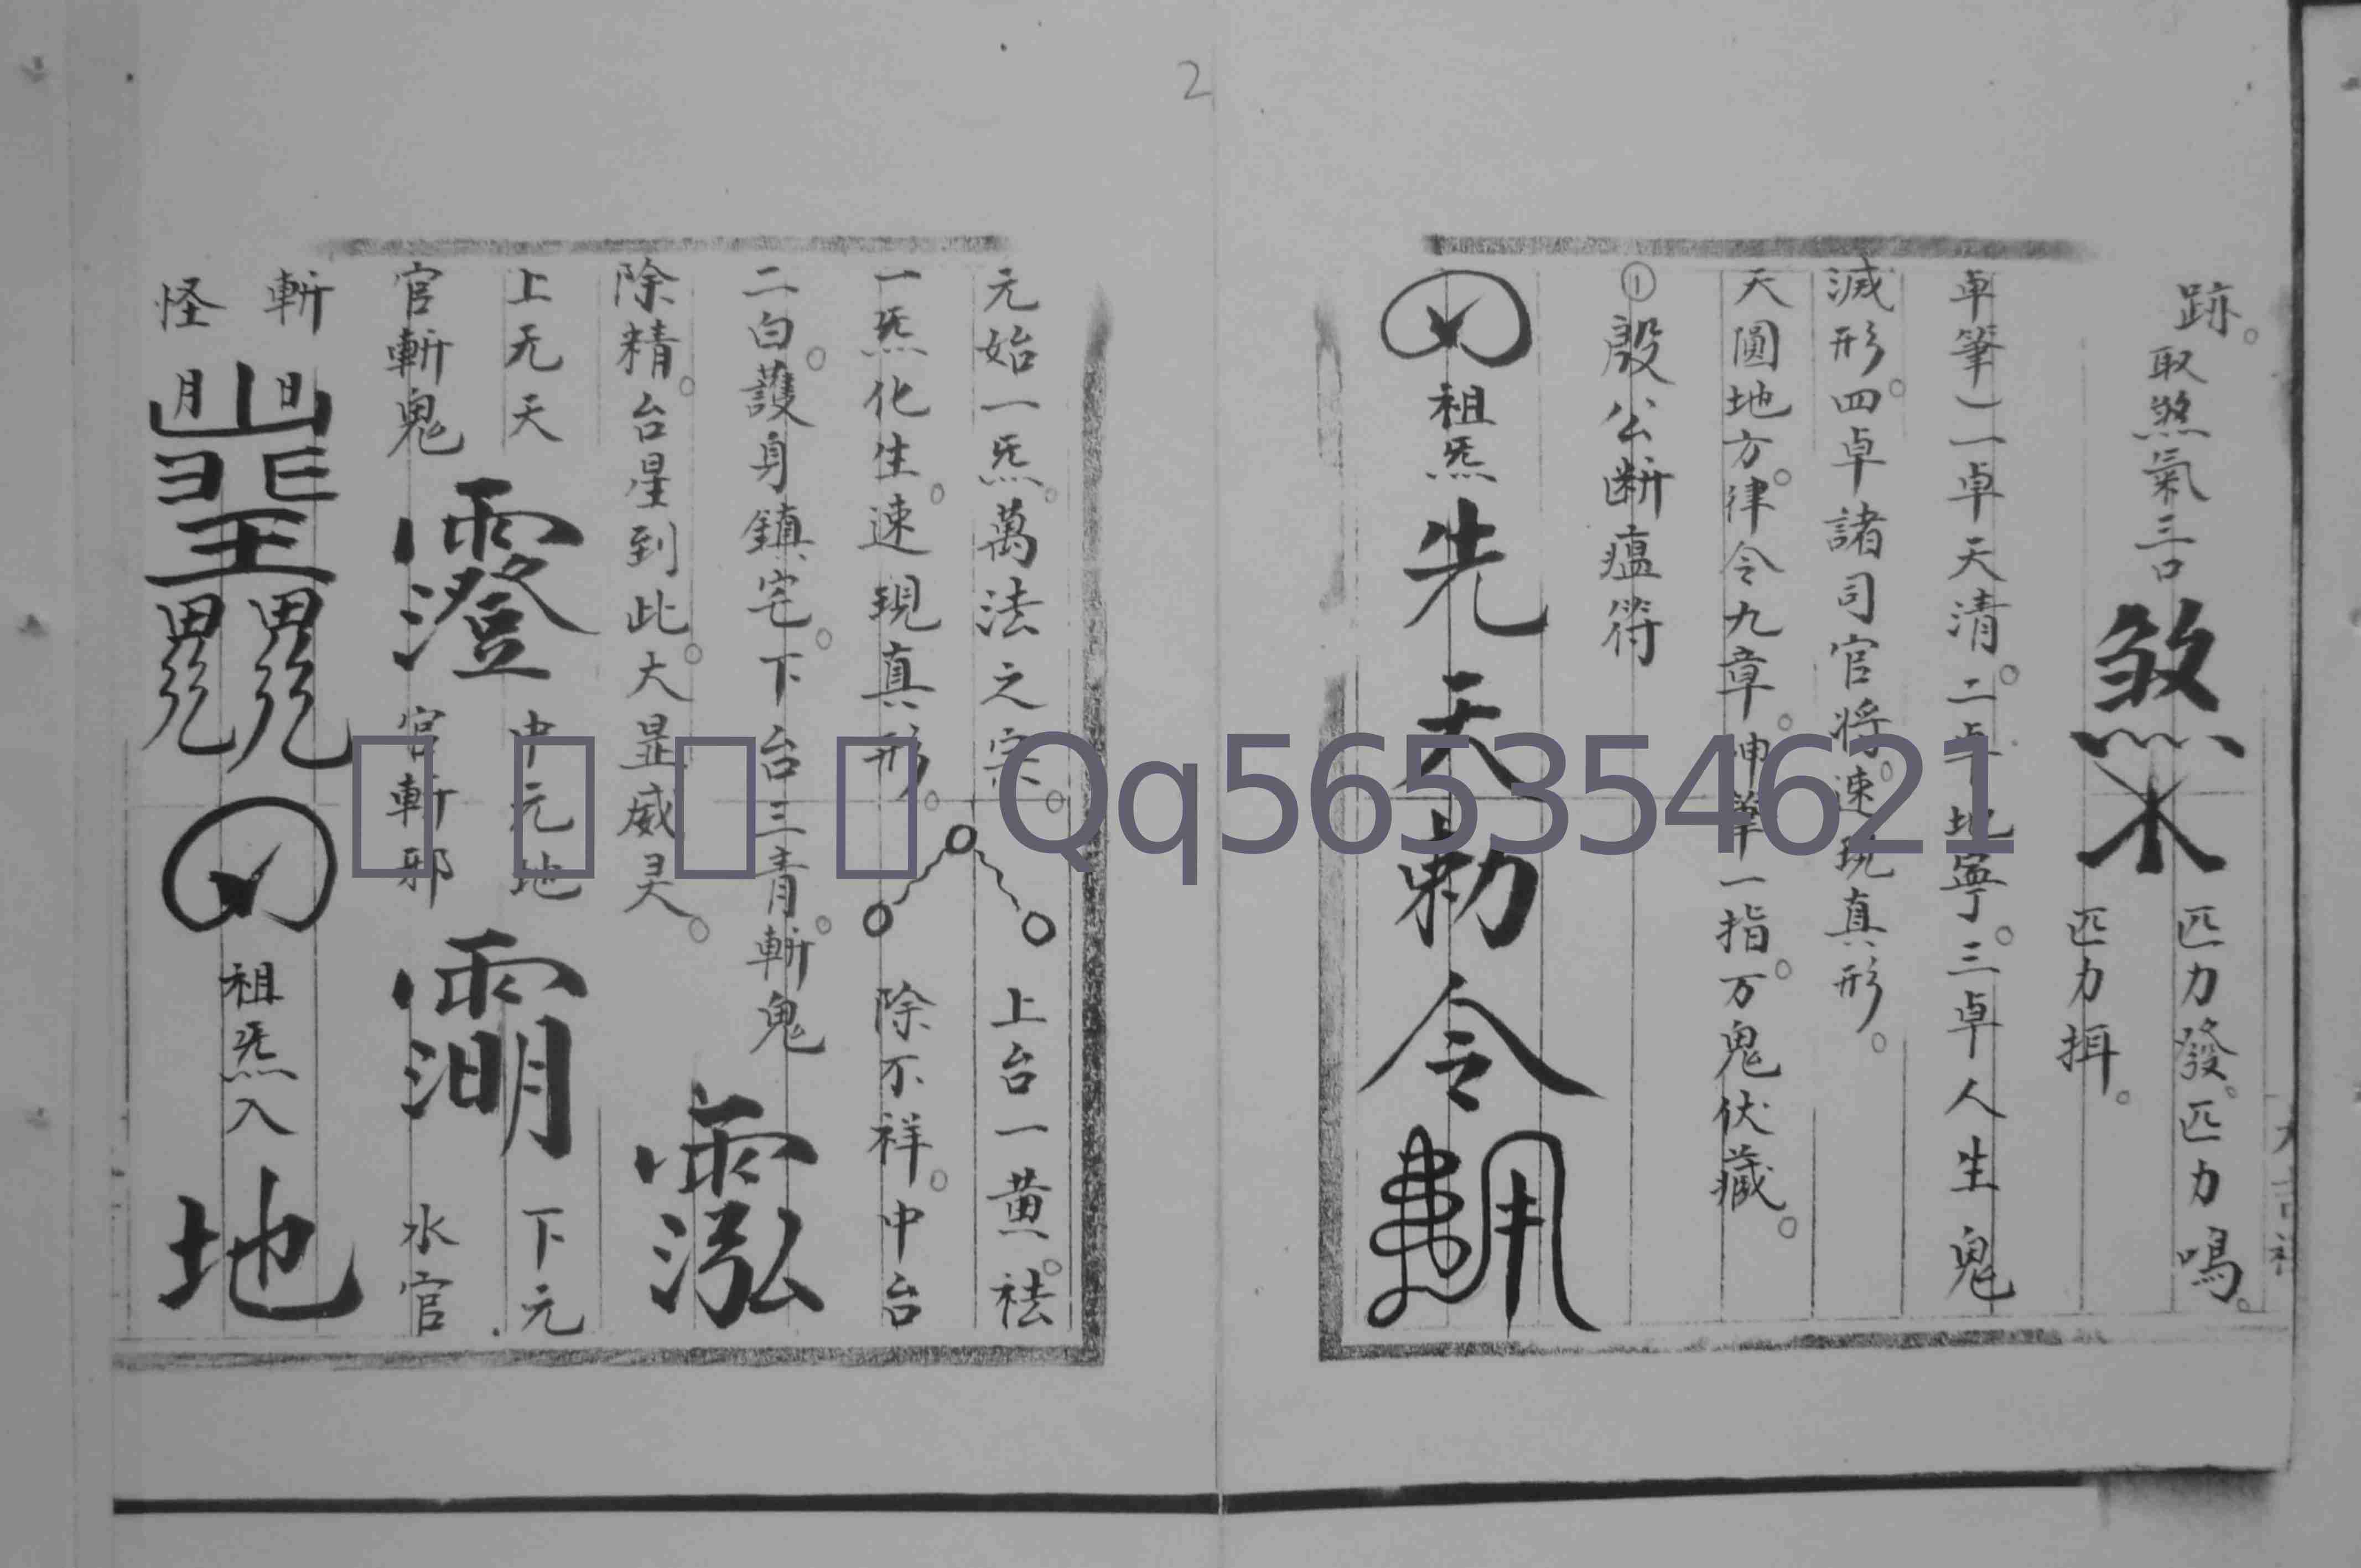 2
跡。取煞氣三口
煞
匹力發。匹力鳴。
匹力揖。
卓筆）一卓天清。二卓地寧。三卓人生鬼
滅形。四卓諸司官將。速現真形。
天圓地方。律令九章。神筆一指。万鬼伏藏。
①殷公断瘟符
祖炁先天勅令
元始一炁。萬法之宗。
一炁化生。速現真形。
上台一黄。祛
除不祥。中台
二白。護身鎮宅。下台三青。斬鬼
除精。台星到此。大显威灵。
上元天
官斬鬼
中元地
官斬邪
下元
水官
斬
怪
祖炁入地
Qq565354621